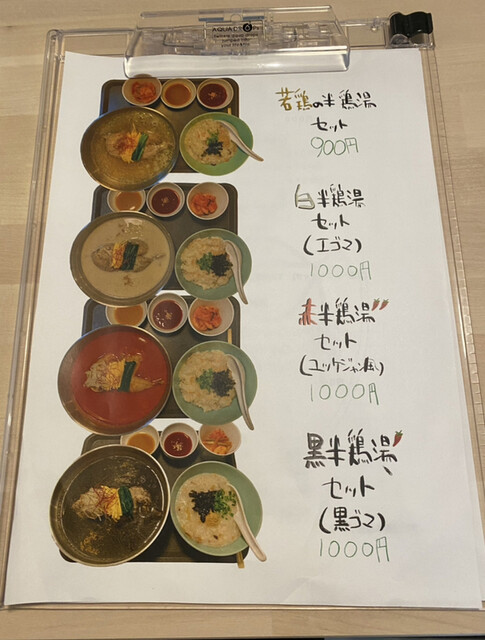 若鶏の半鶏湯
セット
900円
白半鶏湯
セット
(エゴマ)
1000円
赤半鶏湯
セット
(ユッケジャン風)
1000円
黒半鶏湯
セット
(黒ゴマ)
1000円